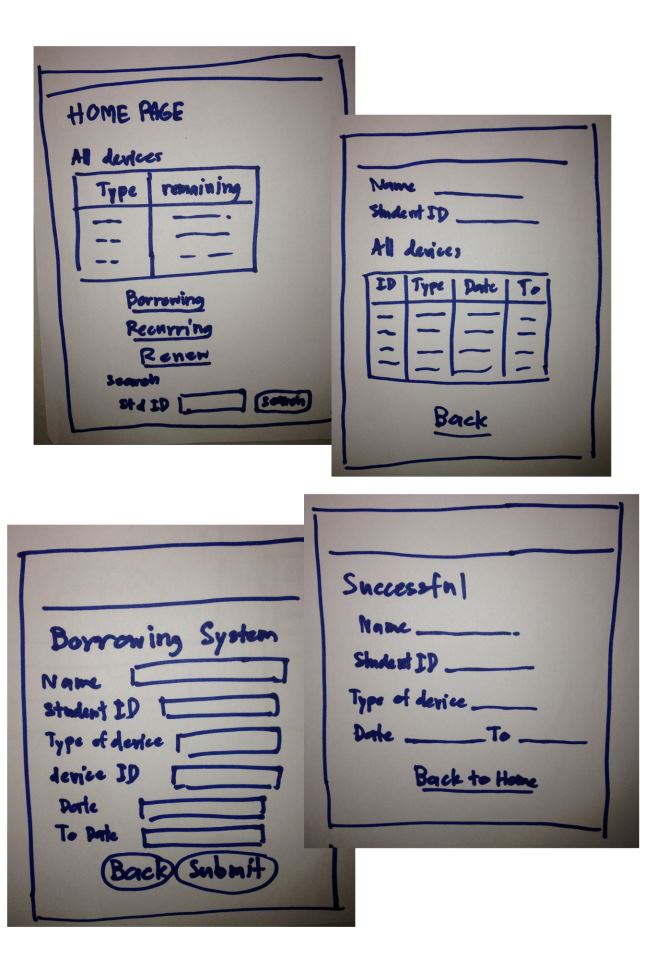 HOME PAGE
All devices
Type remaining
Borrowing
Recurring
Renew
search
std ID search
Name
Student ID
All devices
ID Type Date To
Back
Borrowing System
Name
Student ID
Type of device
device ID
Date
To Date
Back Submit
Successful
Name
Student ID
Type of device
Date To
Back to Home